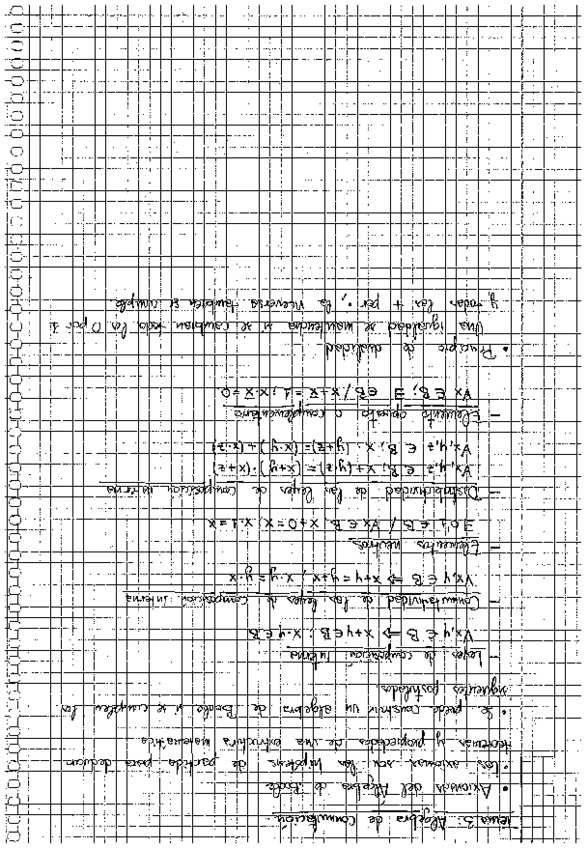 Tema 3: Álgebra de Conmutación.
• Axiomas del Álgebra de Boole
• Los axiomas son las hipótesis de partida para deducir
teoremas y propiedades de una estructura matemática
• Se puede construir un álgebra de Boole si se cumplen los
siguientes postulados.
- Leyes de composición interna
∀x,y ∈ B ⇒ x+y ∈ B ; x·y ∈ B
- Conmutatividad de las leyes de composición interna
∀x,y ∈ B ⇒ x+y = y+x ; x·y = y·x
- Elementos neutros
∃ 0,1 ∈ B / ∀x ∈ B x+0=x; x·1=x
- Distributividad de las leyes de composición interna
∀x,y,z ∈ B; x+(y·z)=(x+y)·(x+z)
∀x,y,z ∈ B; x·(y+z)=(x·y)+(x·z)
- Elemento opuesto o complementario
∀x ∈ B; ∃ x̄ ∈ B / x+x̄=1; x·x̄=0
• Principio de dualidad
Una igualdad se mantiene si se cambian todos los 0 por 1
y todos los + por ·, la viceversa también se cumple.